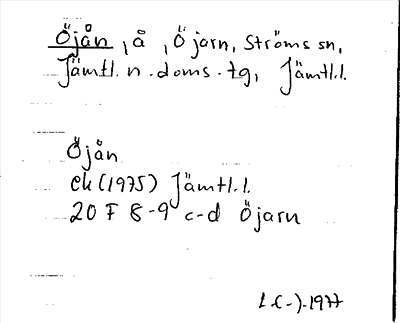 Öjån, å, Öjarn, Ströms sn,
Jämtl. n. doms. tg, Jämtl.l.
Öjån
ek (1975) Jämtl.l.
20 F 8-9 c-d Öjarn
1977